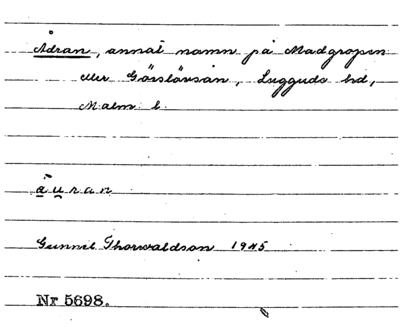 Ådran, annat namn på Madgropen
eller Görslövsån, Luggude hd,
Malm. l.
äuran
Gunnel Thorwaldson 1945
Nr 5698.